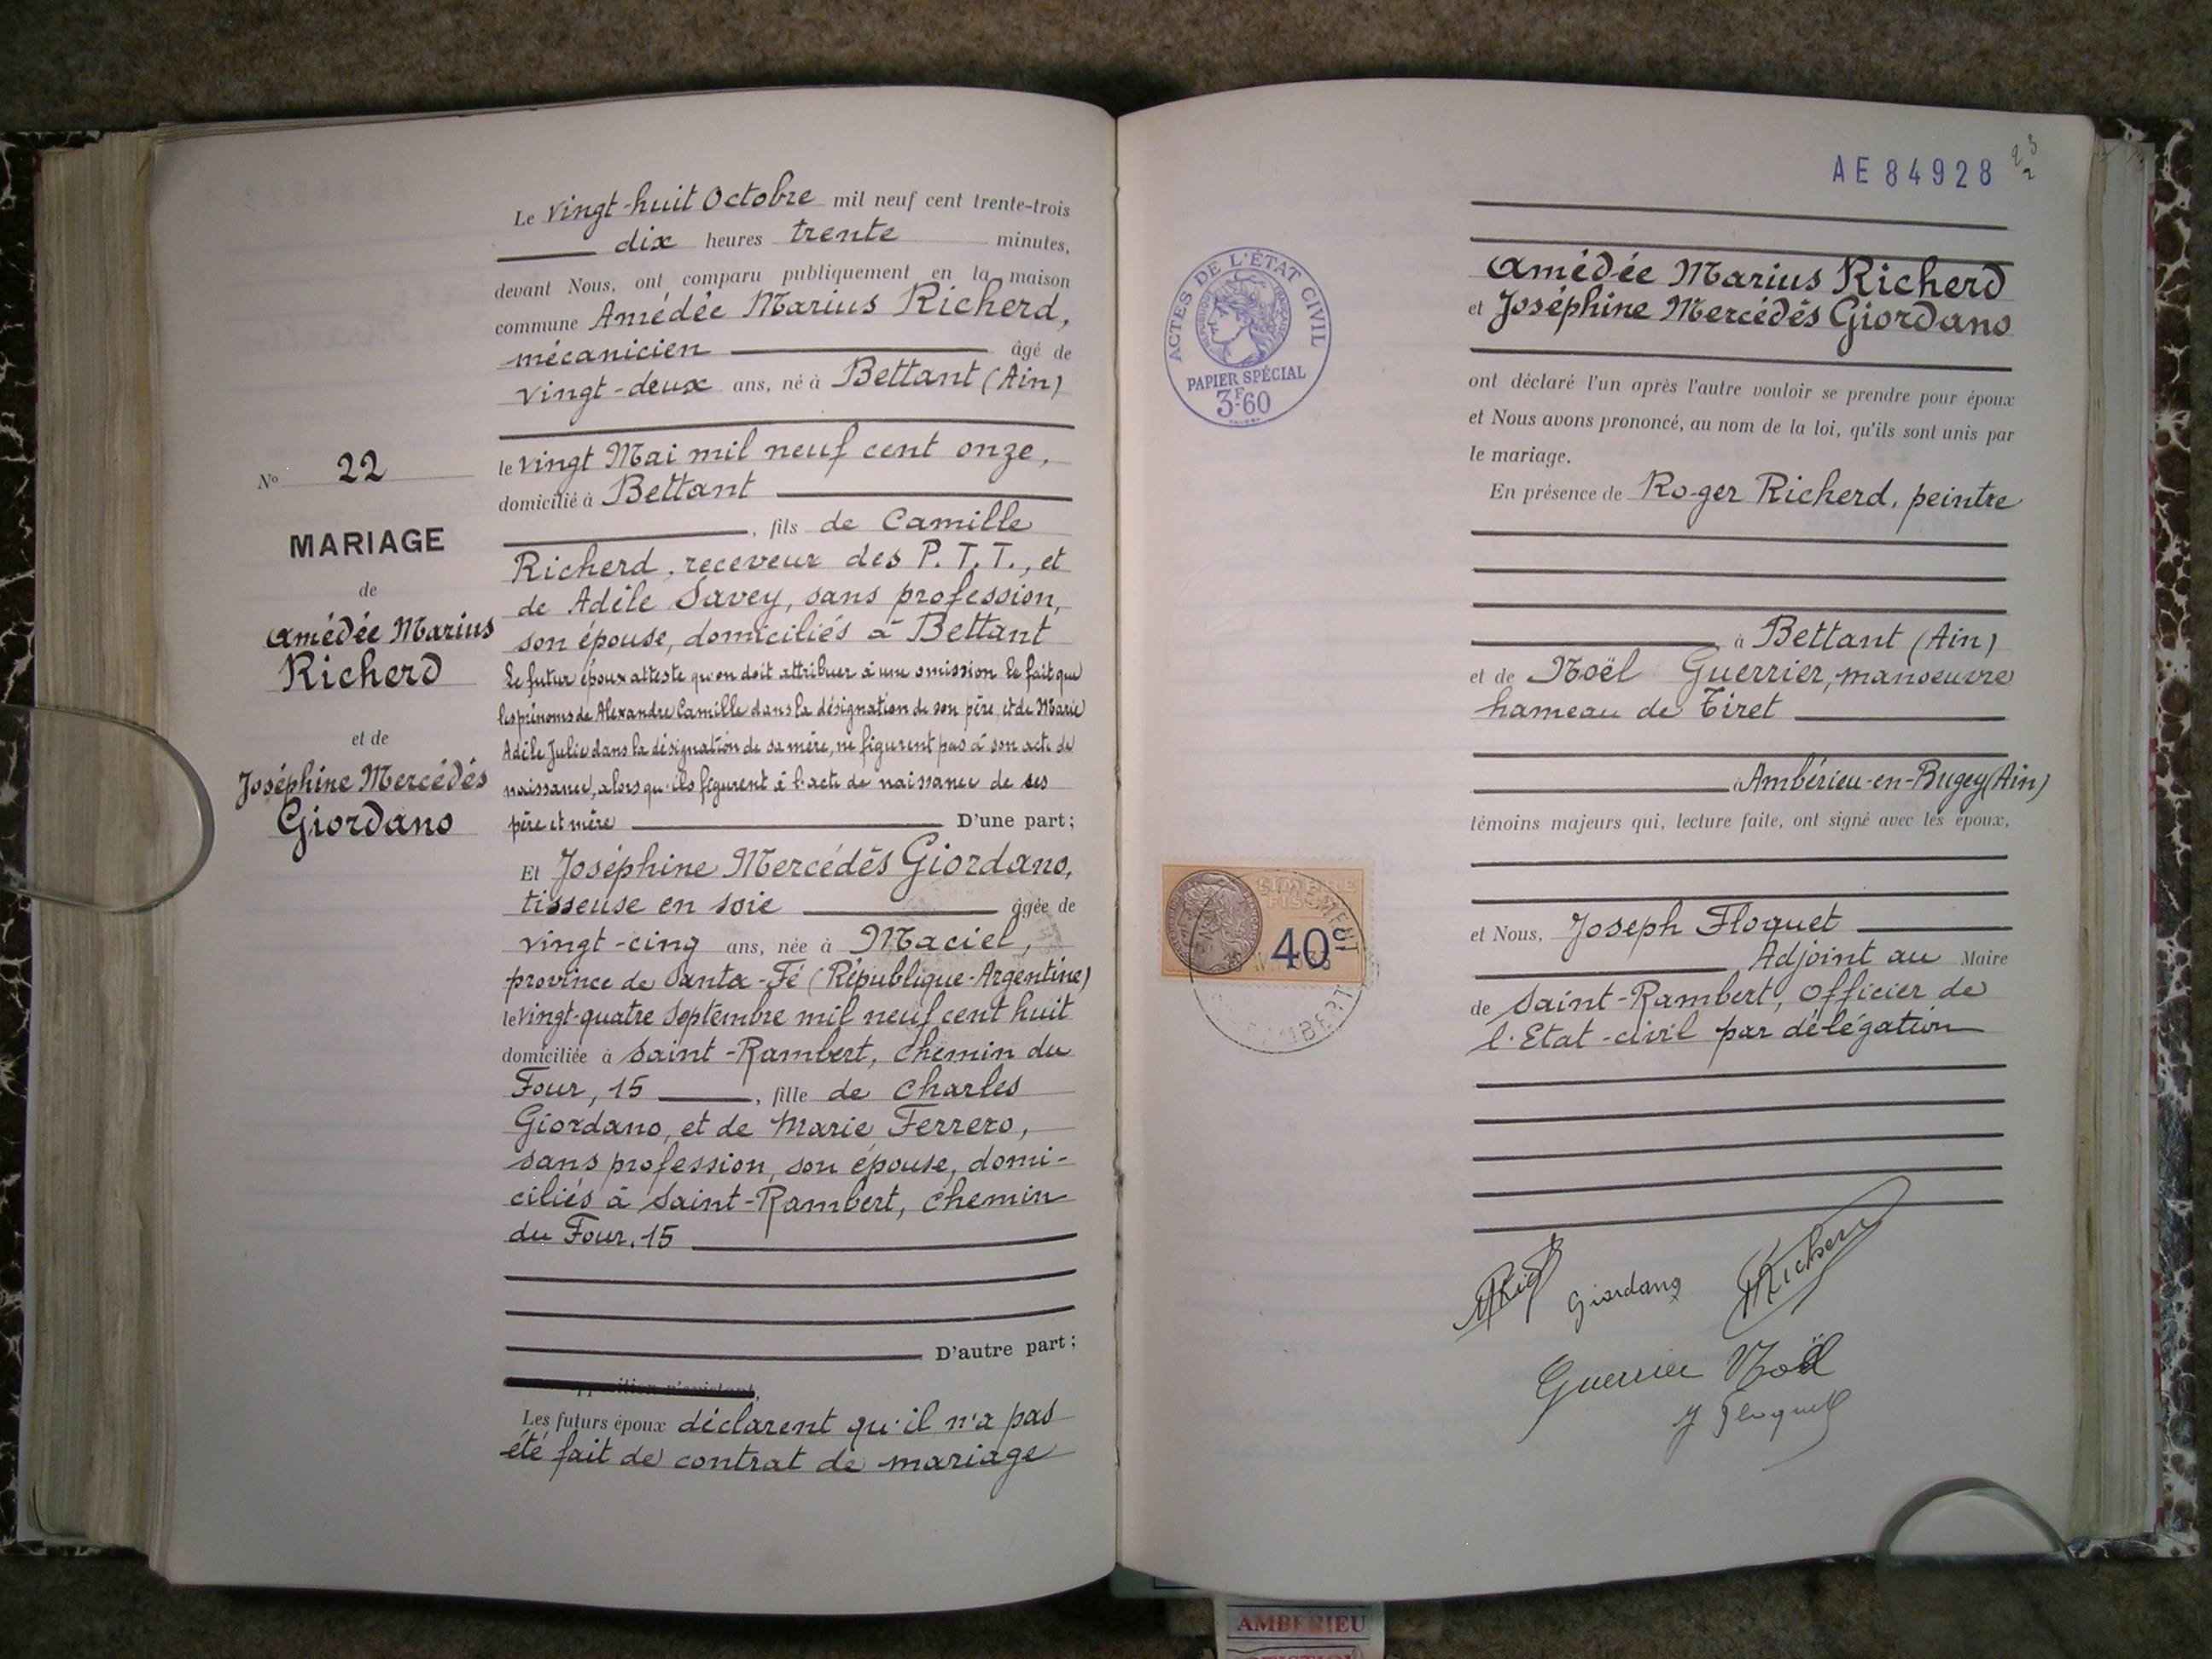 Le vingt-huit Octobre mil neuf cent trente-trois
dix heures trente minutes,
devant Nous, ont comparu publiquement en la maison
commune Amédée Marius Richerd,
mécanicien âgé de
vingt-deux ans, né à Bettant (Ain)
le vingt Mai mil neuf cent onze,
domicilié à Bettant
, fils de Camille
Richerd, receveur des P.T.T., et
de Adèle Savey, sans profession,
son épouse, domiciliés à Bettant
Le futur époux atteste qu'on doit attribuer à une omission le fait que
les prénoms de Alexandre Camille dans la désignation de son père, et de Marie
Adèle Julie dans la désignation de sa mère, ne figurent pas à son acte de
naissance, alors qu'ils figurent à l'acte de naissance de ses
père et mère D'une part;
No 22
MARIAGE
de
Amédée Marius
Richerd
et de
Joséphine Mercédés
Giordano
Et Joséphine Mercédés Giordano,
tisseuse en soie âgée de
vingt-cinq ans, née à Maciel,
province de Santa-Fé (République-Argentine)
le vingt-quatre Septembre mil neuf cent huit
domiciliée à Saint-Rambert, chemin du
Four, 15, fille de Charles
Giordano, et de Marie Ferrero,
sans profession, son épouse, domi-
ciliés à Saint-Rambert, chemin
du Four, 15
D'autre part;
Les futurs époux déclarent qu'il n'a pas
été fait de contrat de mariage
AE 84928
23
2
ACTES DE L'ÉTAT CIVIL
PAPIER SPÉCIAL
3F60
Amédée Marius Richerd
et Joséphine Mercédés Giordano
ont déclaré l'un après l'autre vouloir se prendre pour époux
et Nous avons prononcé, au nom de la loi, qu'ils sont unis par
le mariage.
En présence de Roger Richerd, peintre
à Bettant (Ain)
et de Noël Guerrier, manoeuvre
hameau de Tiret
à Ambérieu-en-Bugey (Ain)
témoins majeurs qui, lecture faite, ont signé avec les époux,
TIMBRE
FISCAL
40c
et Nous, Joseph Floquet
Adjoint au Maire
de Saint-Rambert, Officier de
l'Etat-civil par délégation
Giordano
Richerd
Guerrier Noël
J Floquet
AMBERIEU